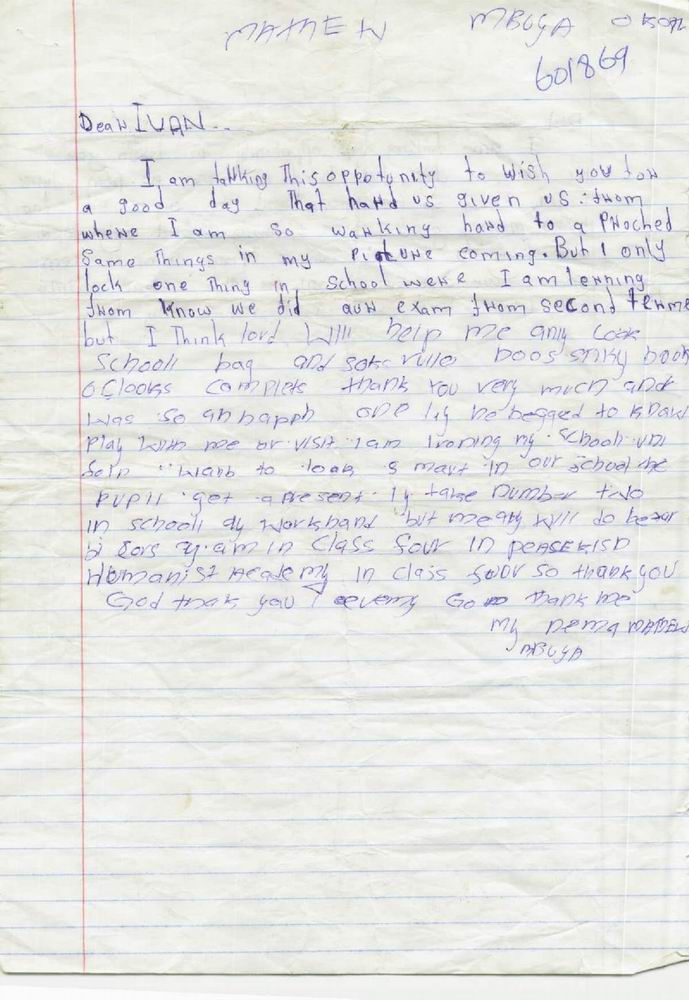 MATHEW MBUYA
601869
Dear IVAN..
I am takking This oppotunity to wish you for
a good day That hard us given us from
where I am so warking hard to a Proched
Same Things in my Picture coming. But I only
lock one Thing in School were I am lerning
from know we did aur exam from second terme
but I Think lord Will help me only Look
School bag and book
6 Clooks complets thank You very much and
was so an happh one to know
Play with me or visit I am Ironing my School uni
form want to look smart in our school he
pupil get a present Iy take number two
in school workhard but me will do
am in Class four In
Humanist Academy in Class four so thank you
God thak you God thank me
my nema MATHEW
MBUYA